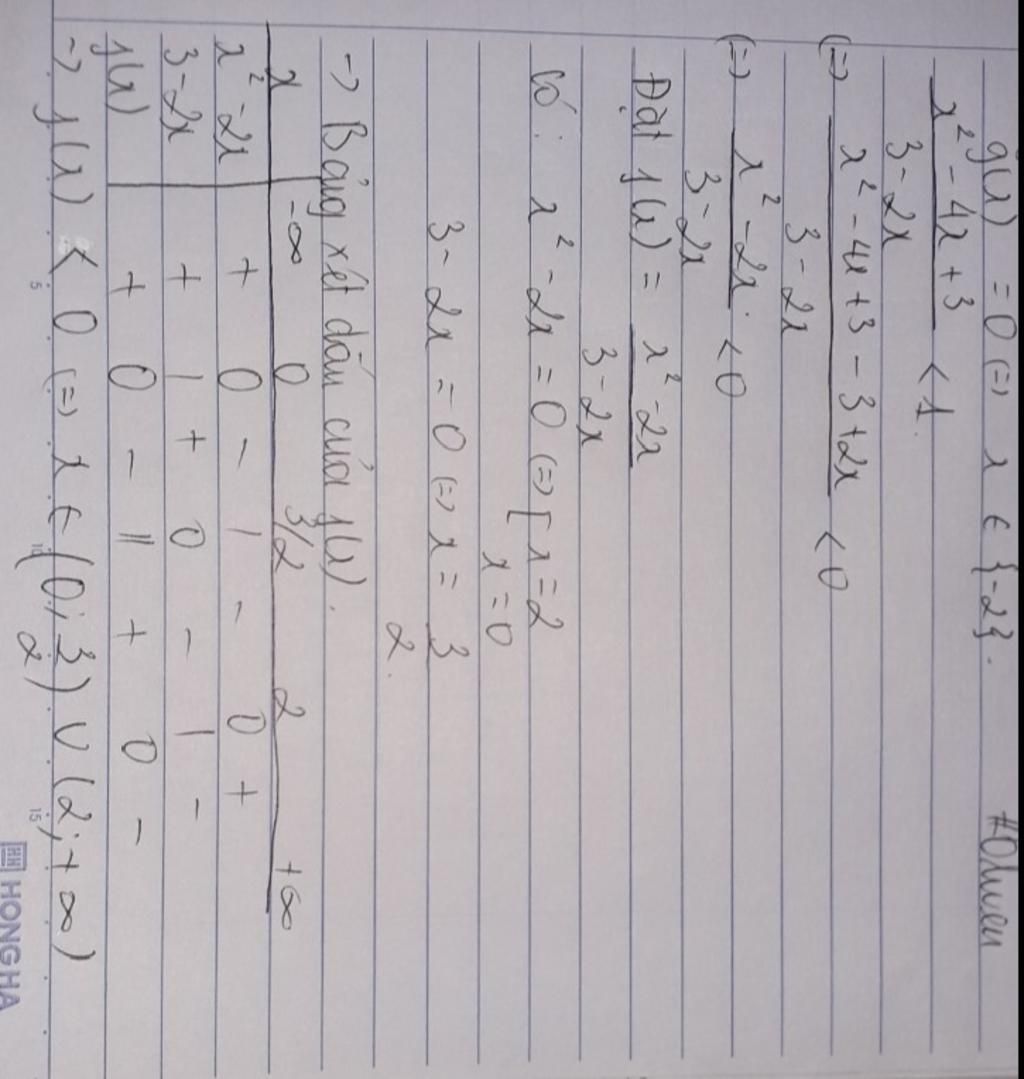 g(x) = 0 (=) x ∈ {-2}.
#Olwen
x² - 4x + 3 < 1.
3 - 2x
(=) x² - 4x + 3 - 3 + 2x < 0
3 - 2x
(=) x² - 2x < 0
3 - 2x
Đặt f(x) = x² - 2x
3 - 2x
Có: x² - 2x = 0 (=) [ x = 2
x = 0
3 - 2x = 0 (=) x = 3
2.
-> Bảng xét dấu của f(x).
x -∞ 0 3/2 2 +∞
x² - 2x + 0 - | - 0 +
3 - 2x + | + 0 - | -
f(x) + 0 - || + 0 -
-> f(x) < 0 (=) x ∈ (0; 3) ∪ (2; +∞)
2
5 10 15
HH HONG HA